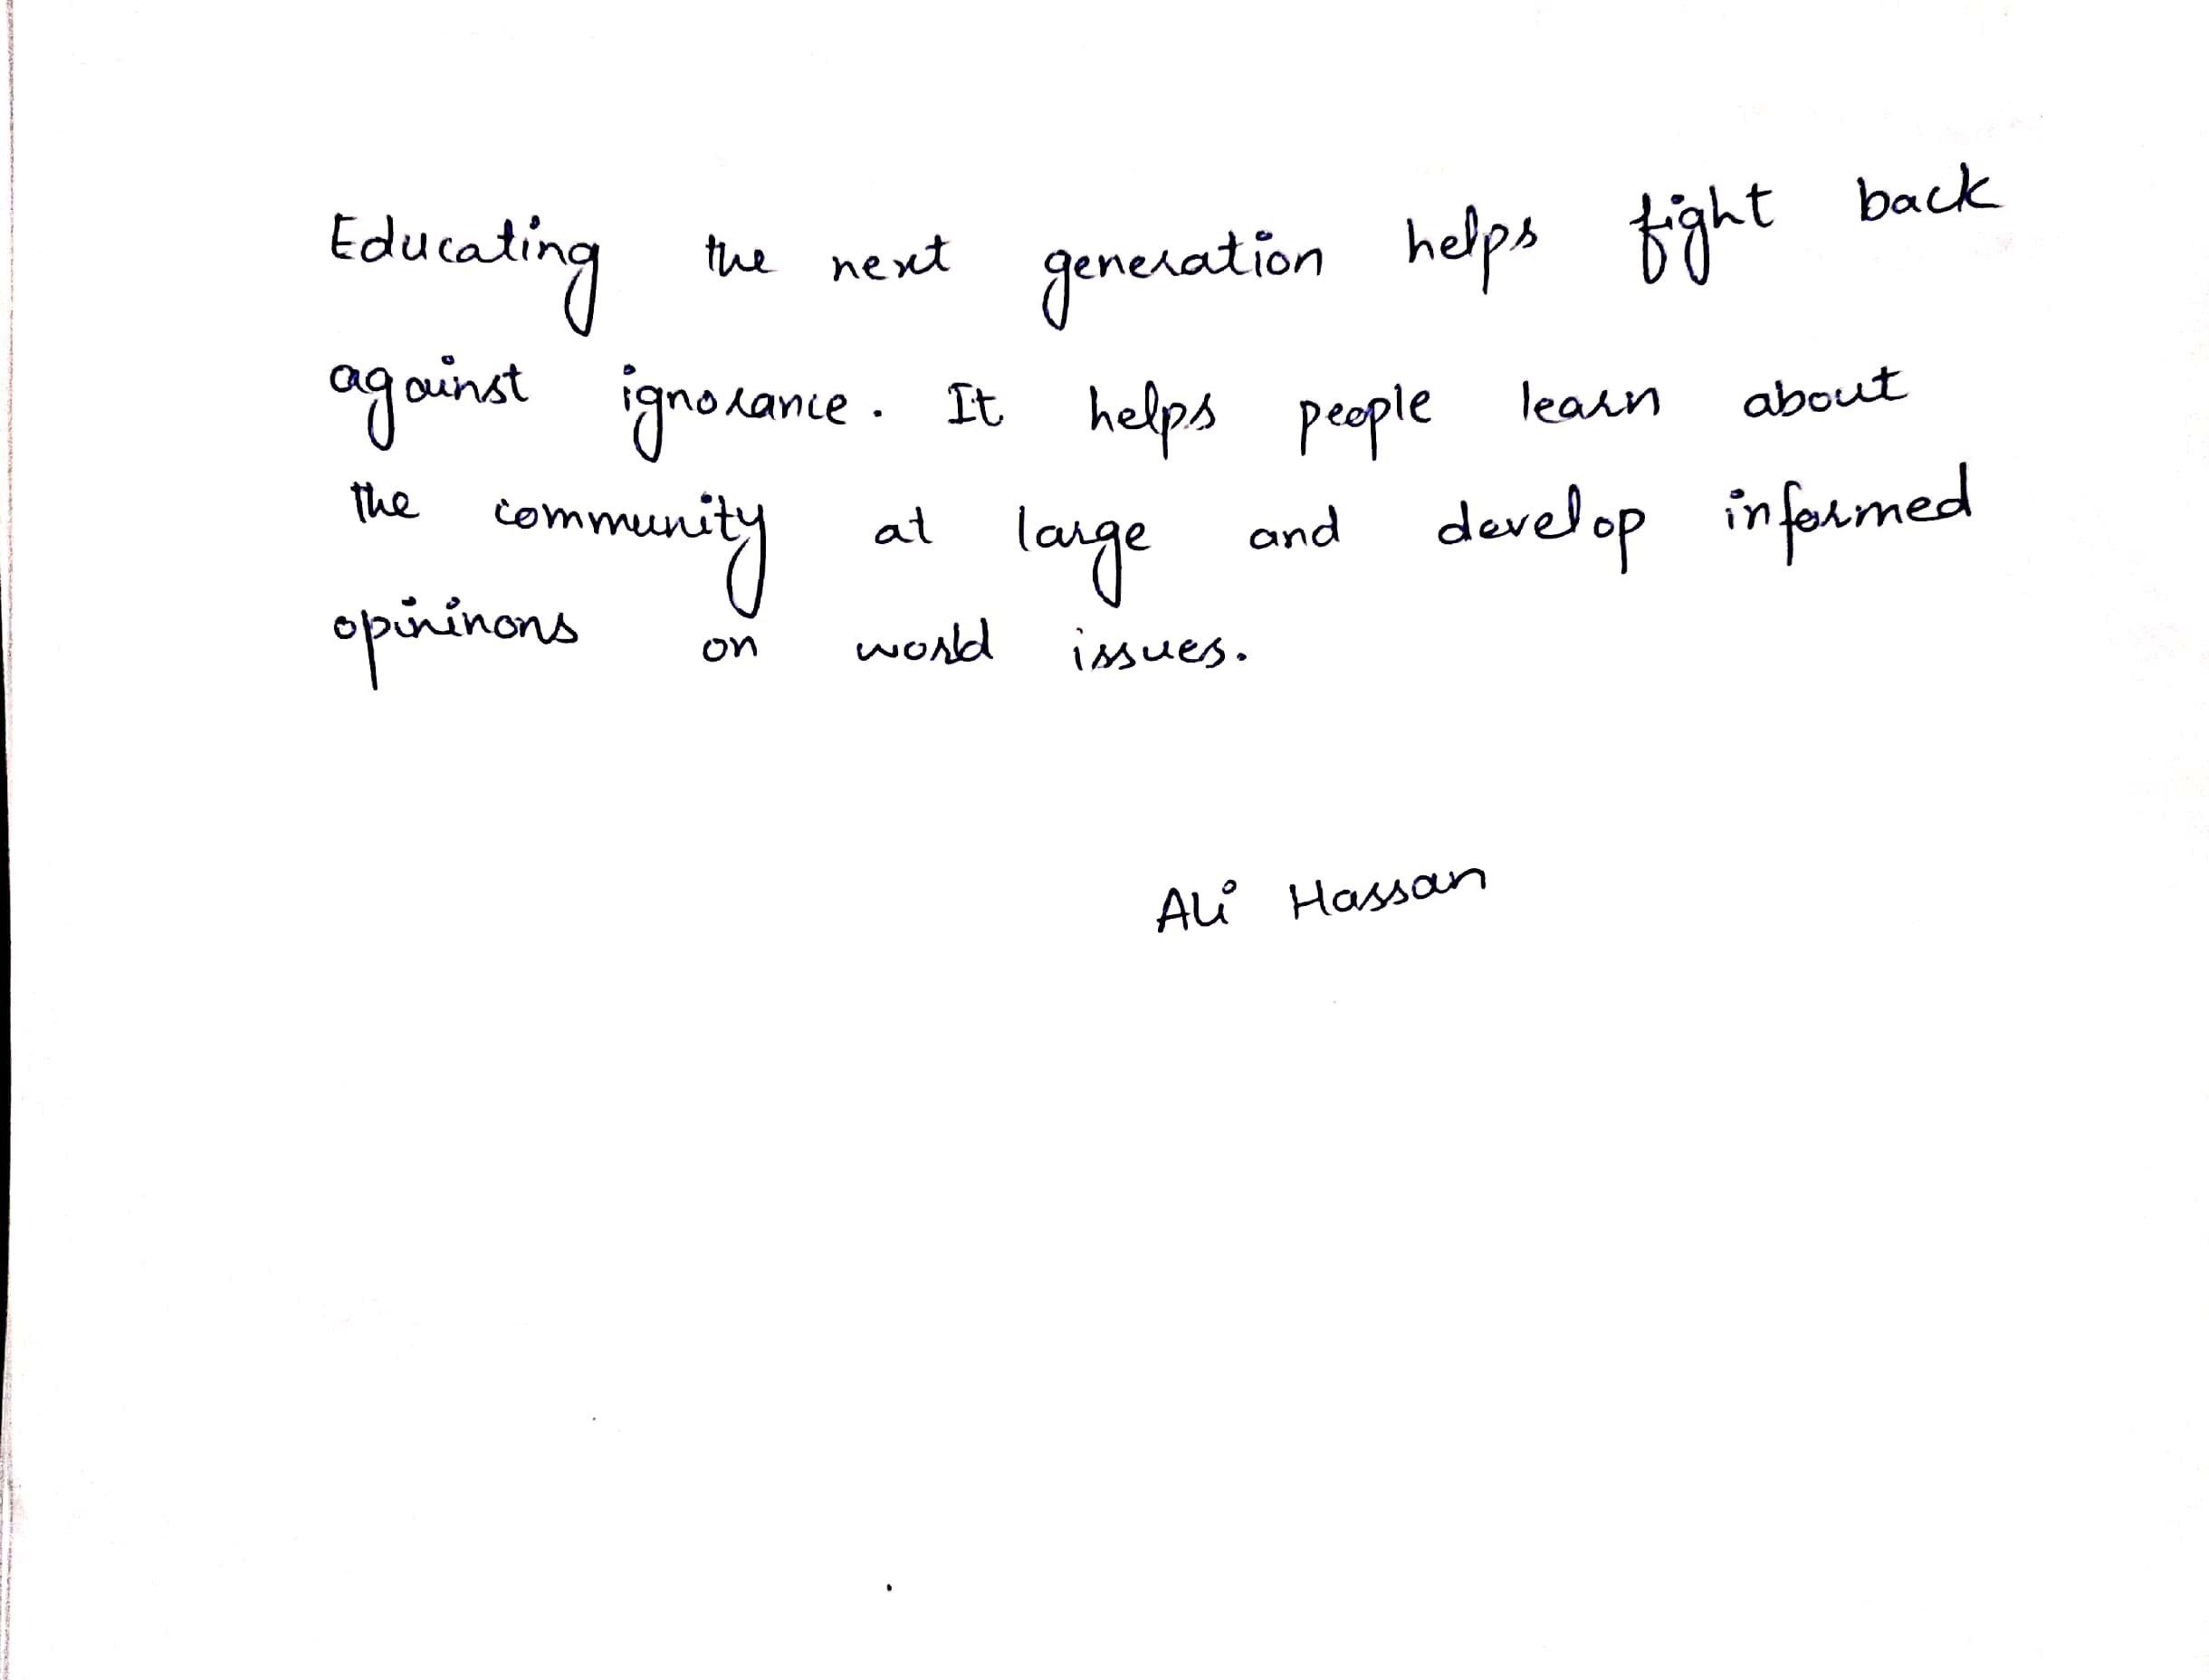 Educating the next generation helps fight back
against ignorance. It helps people learn about
the community at large and develop informed
opininons on world issues.
Ali Hassan